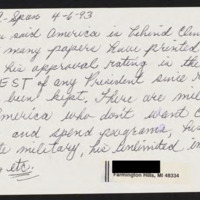 -Span 4-6-93
said America is behind Clin
many papers have printed
his approval rating is the
EST of any President since r
been kept. There are mil
merica who don't want
and spend programs, his
military, his unlimited im
etc.
Farmington Hills, MI 48334